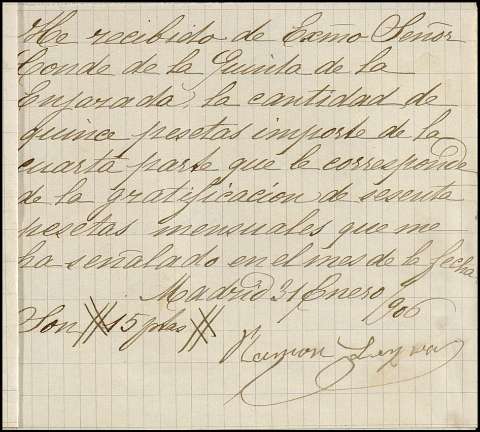 He recibido de Exmo Señor
Conde de la Quinta de la
Enjarada, la cantidad de
quince pesetas importe de la
cuarta parte que le corresponde
de la gratificacion de sesenta
pesetas mensuales que me
ha señalado en el mes de la fecha
Madrid 31 Enero 906
Son # 15 ptas #
Ramon Leyva